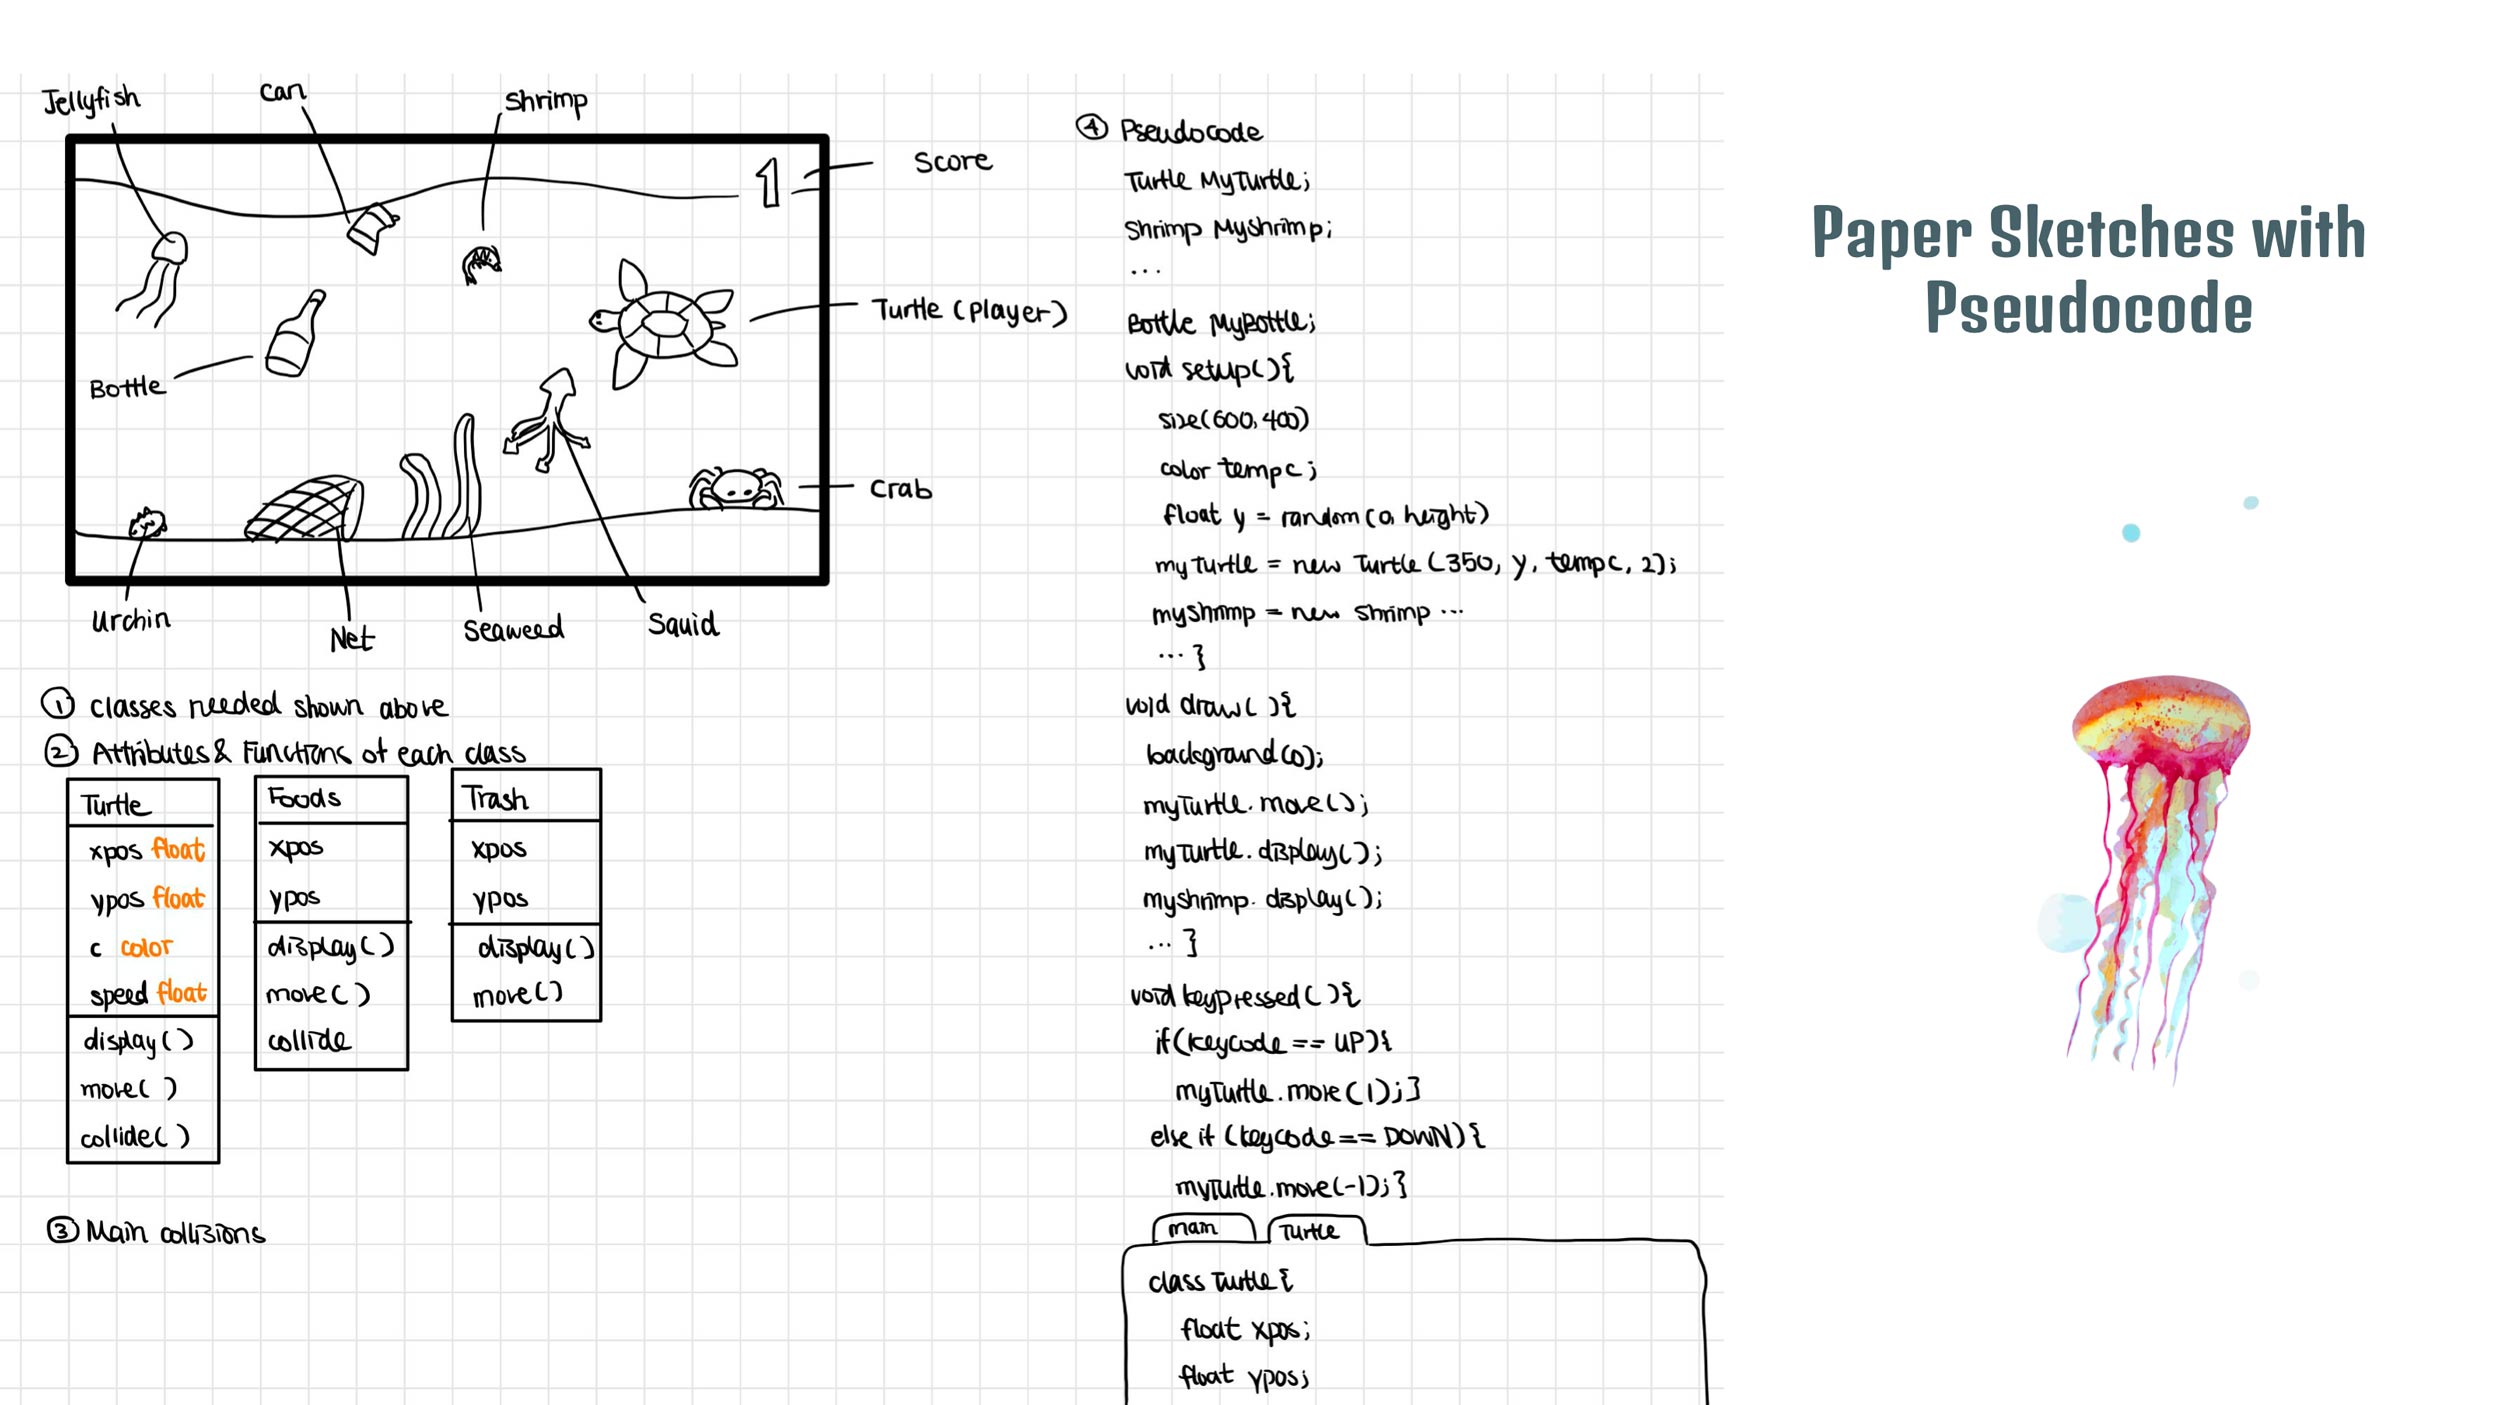 Jellyfish
can
Shrimp
1
Score
Turtle (player)
Bottle
crab
Urchin
Net
Seaweed
Squid
① classes needed shown above
② Attributes & Functions of each class
Turtle
xpos float
ypos float
c color
speed float
display()
move( )
collide( )
Foods
xpos
ypos
display( )
move( )
collide
Trash
xpos
ypos
display()
move()
③ Main collisions
④ Pseudocode
Turtle MyTurtle;
Shrimp Myshrimp;
...
Bottle MyBottle;
void setup(){
size(600,400)
color tempc;
float y = random(0, height)
myTurtle = new Turtle (350, y, tempc, 2);
myshrimp = new shrimp ...
... }
void draw( ){
background(0);
myTurtle.move();
myTurtle.display();
myshrimp.display();
... }
void keypressed( ){
if(keycode == UP){
myTurtle.move(1);}
else if (keycode == DOWN){
myTurtle.move(-1);}
main
Turtle
class Turtle{
float xpos;
float ypos;
Paper Sketches with
Pseudocode